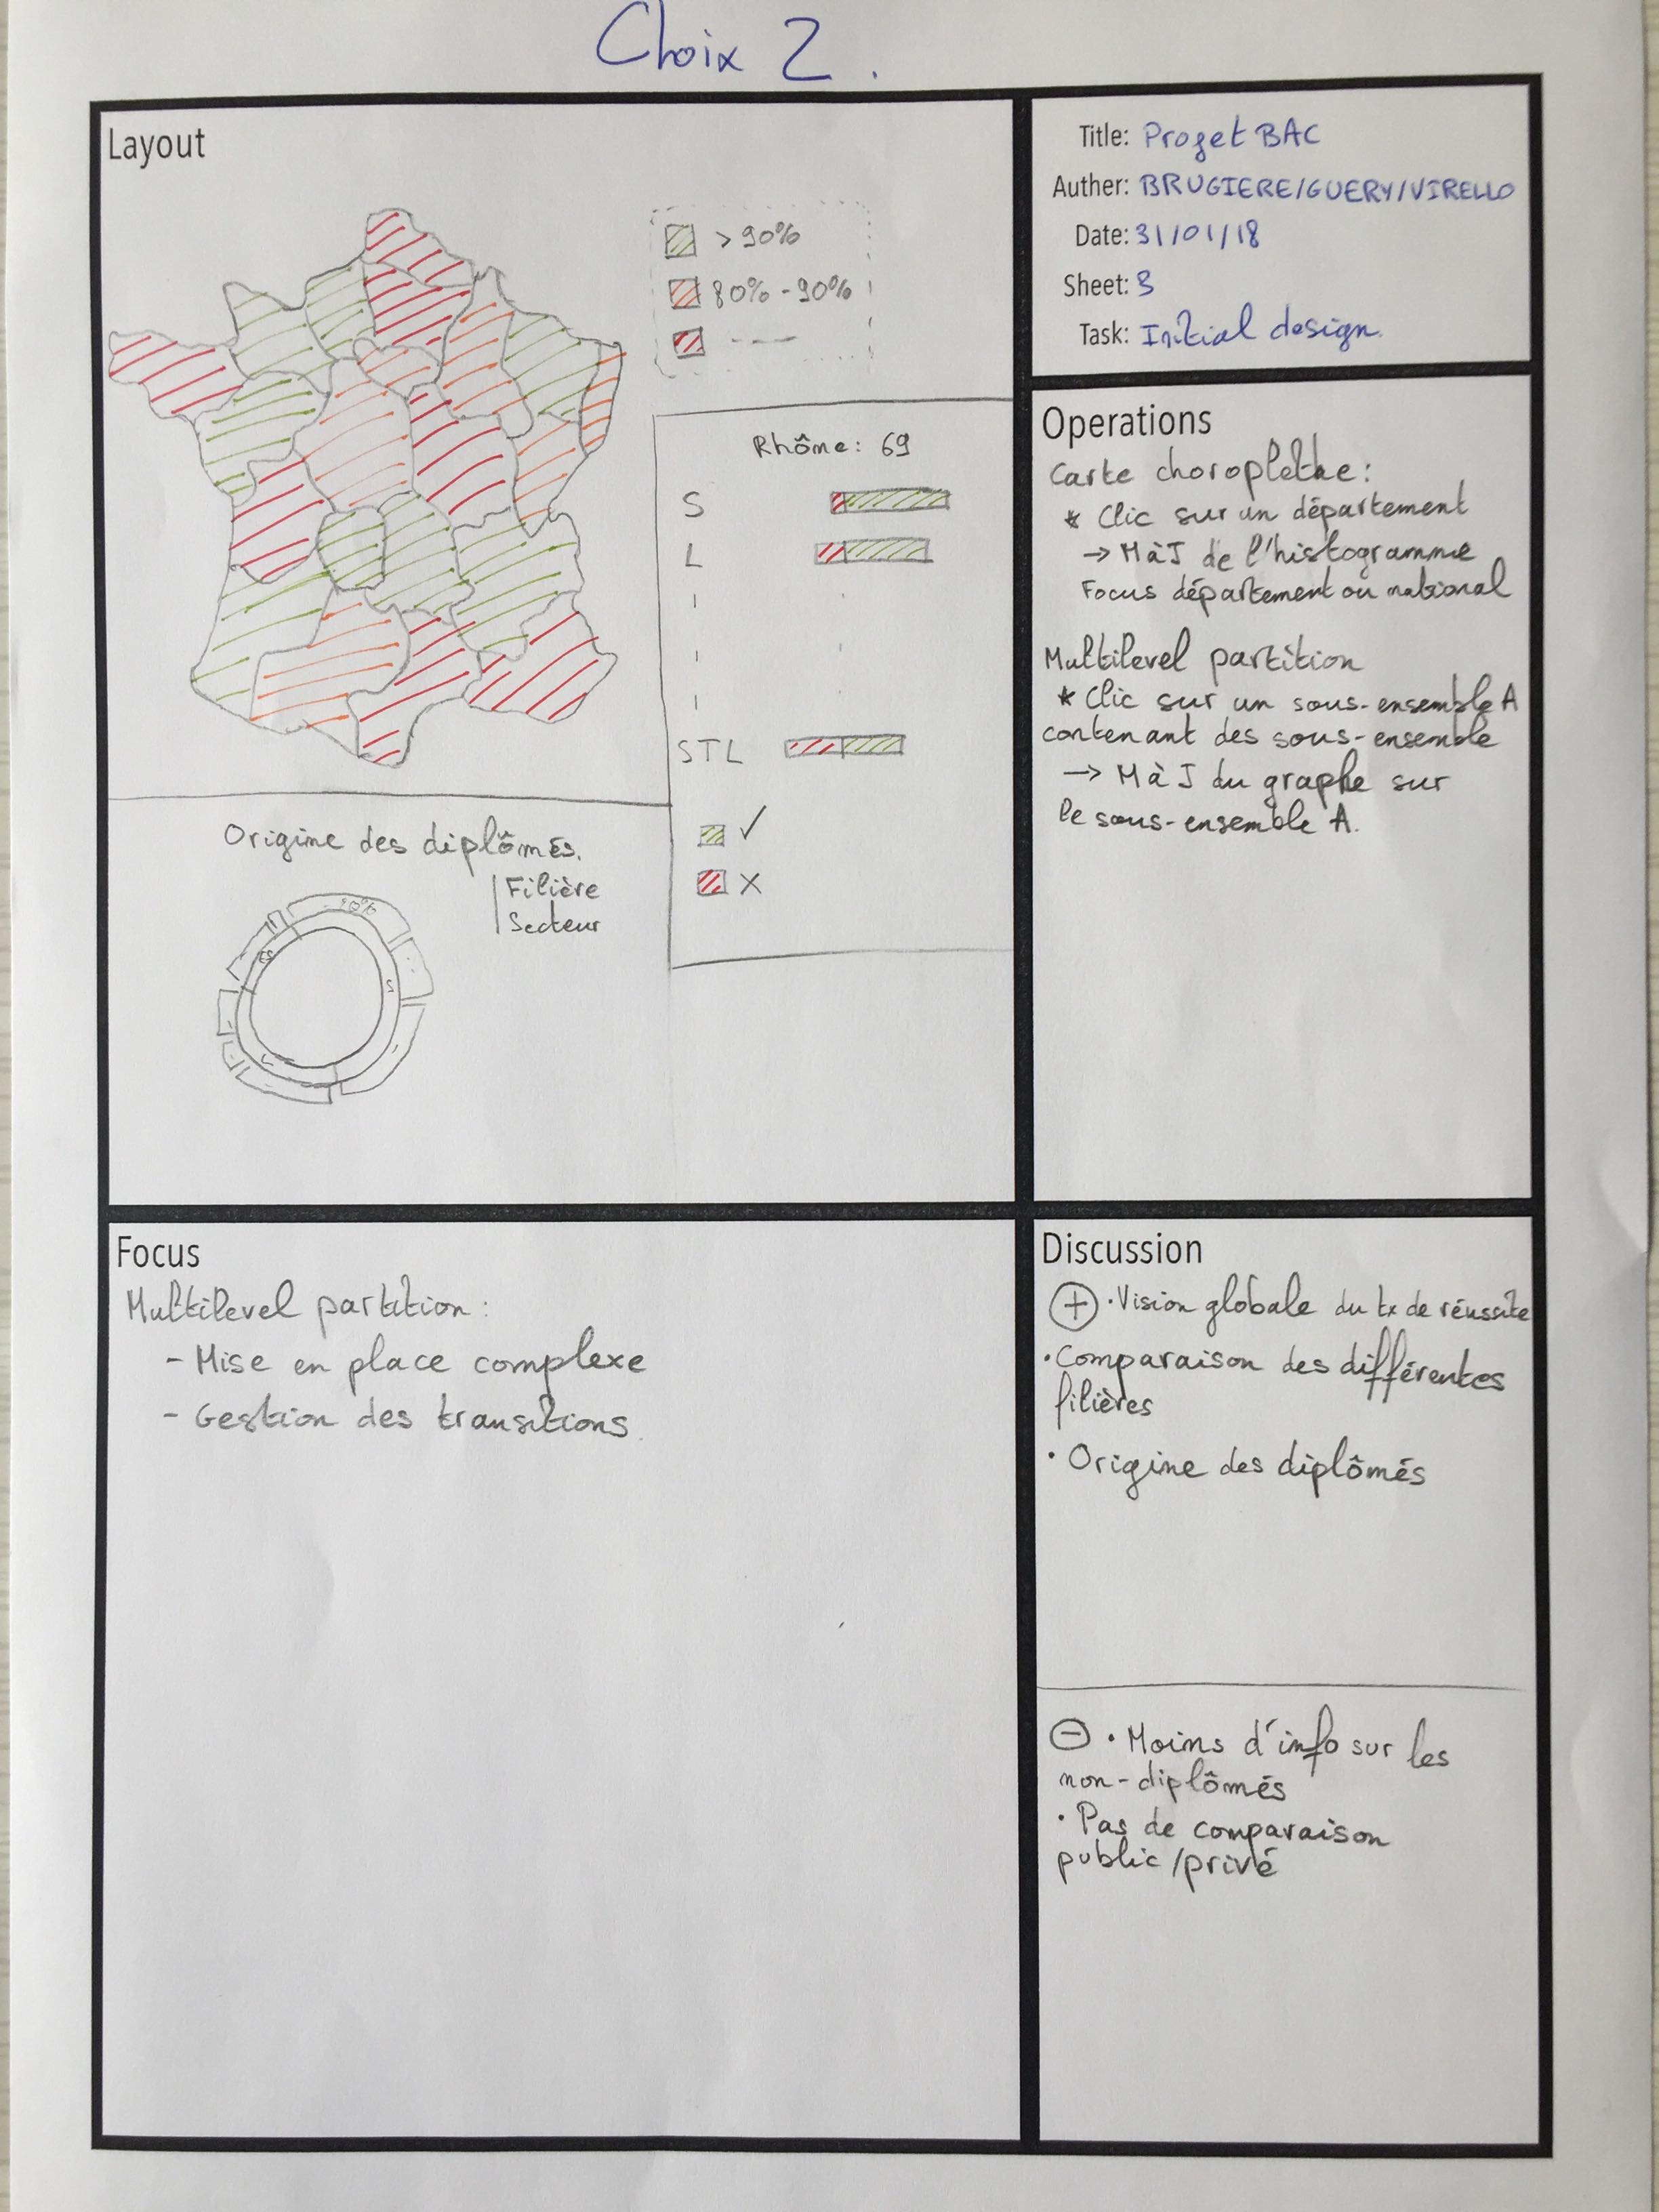 Choix 2.
Layout
> 90%
80% - 90%
Rhône: 69
S
L
STL
✓
X
Origine des diplômés.
Filière
Secteur
Title: Projet BAC
Auther: BRUGIERE/GUERY/VIRELLO
Date: 31/01/18
Sheet: 3
Task: Initial design.
Operations
Carte choroplèthe:
* Clic sur un département
→ MàJ de l'histogramme
Focus département ou national
Multilevel partition
* Clic sur un sous-ensemble A
contenant des sous-ensemble
→ MàJ du graphe sur
le sous-ensemble A.
Focus
Multilevel partition:
- Mise en place complexe
- Gestion des transitions.
Discussion
+ · Vision globale du tx de réussite
· Comparaison des différentes
filières
· Origine des diplômés
- · Moins d'info sur les
non-diplômés
· Pas de comparaison
public/privé